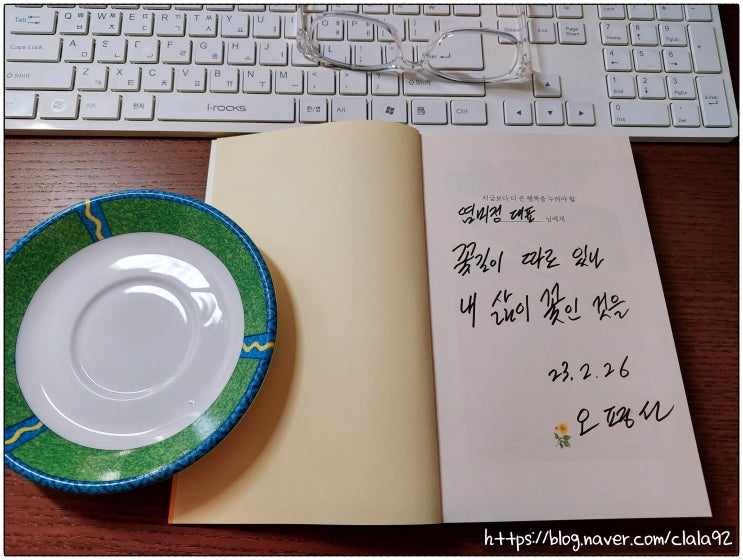 i-rocks
지금보다 더 큰 행복을 누려야 할
염미정 대표 님에게
꽃길이 따로 있나
내 삶이 꽃인 것을
23. 2. 26
오평선
https://blog.naver.com/clala92